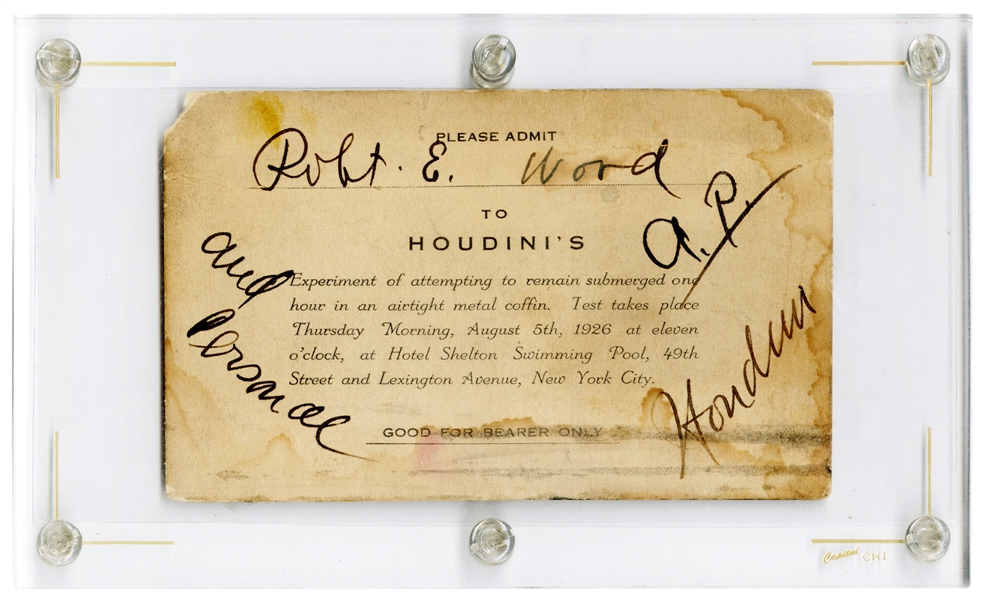 PLEASE ADMIT
Robt. E. Wood
A. P.
TO
HOUDINI'S
and
Personal
Experiment of attempting to remain submerged one
hour in an airtight metal coffin. Test takes place
Thursday Morning, August 5th, 1926 at eleven
o'clock, at Hotel Shelton Swimming Pool, 49th
Street and Lexington Avenue, New York City.
Houdini
GOOD FOR BEARER ONLY
CH1